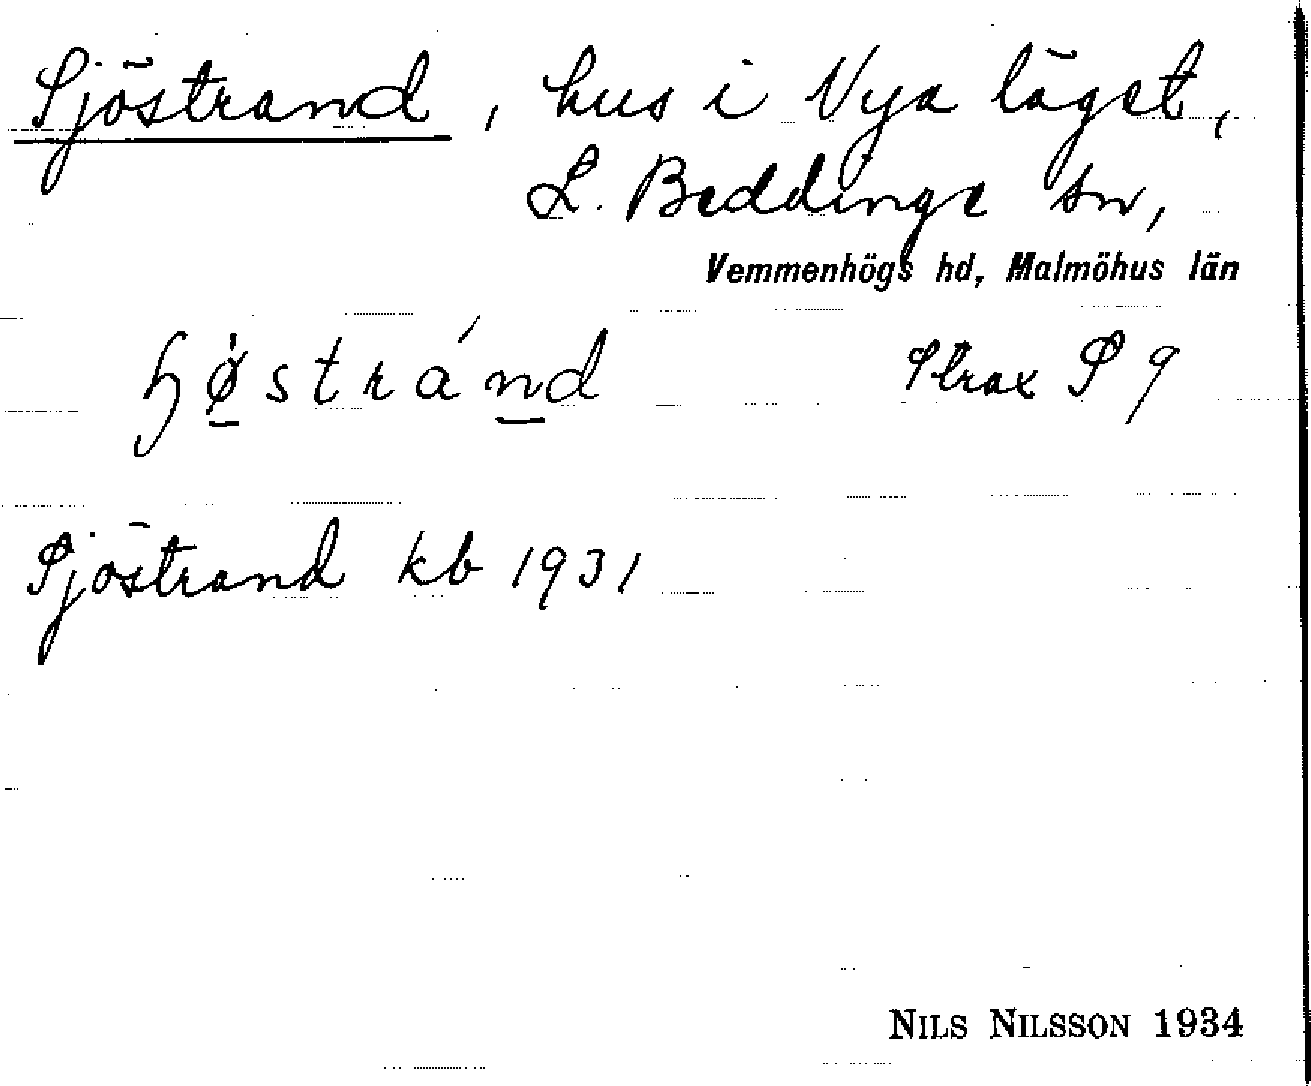 Sjöstrand, hus i Nya läget,
L. Beddinge sn,
Vemmenhögs hd, Malmöhus län
ɧø̱stránd Strax S 9
Sjöstrand kb 1931
NILS NILSSON 1934